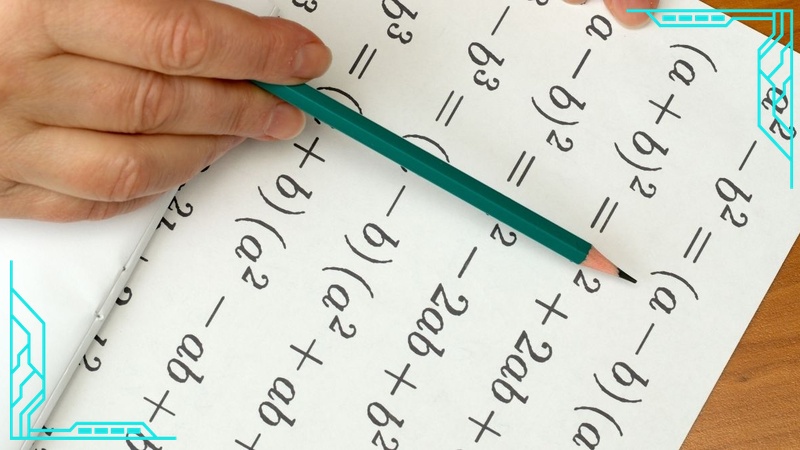 a² − b² = (a − b)(a
(a + b)² = ² + 2ab +
a − b)² = ² − 2ab + b²
³ − b³ = ( − b)(a² + ab +
b³ = ( + b)(a² − ab +